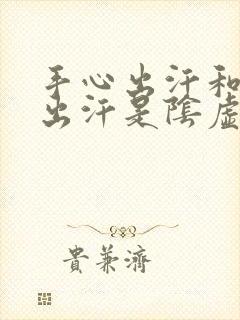 手心出汗和
出汗是陰虛
貴兼濟